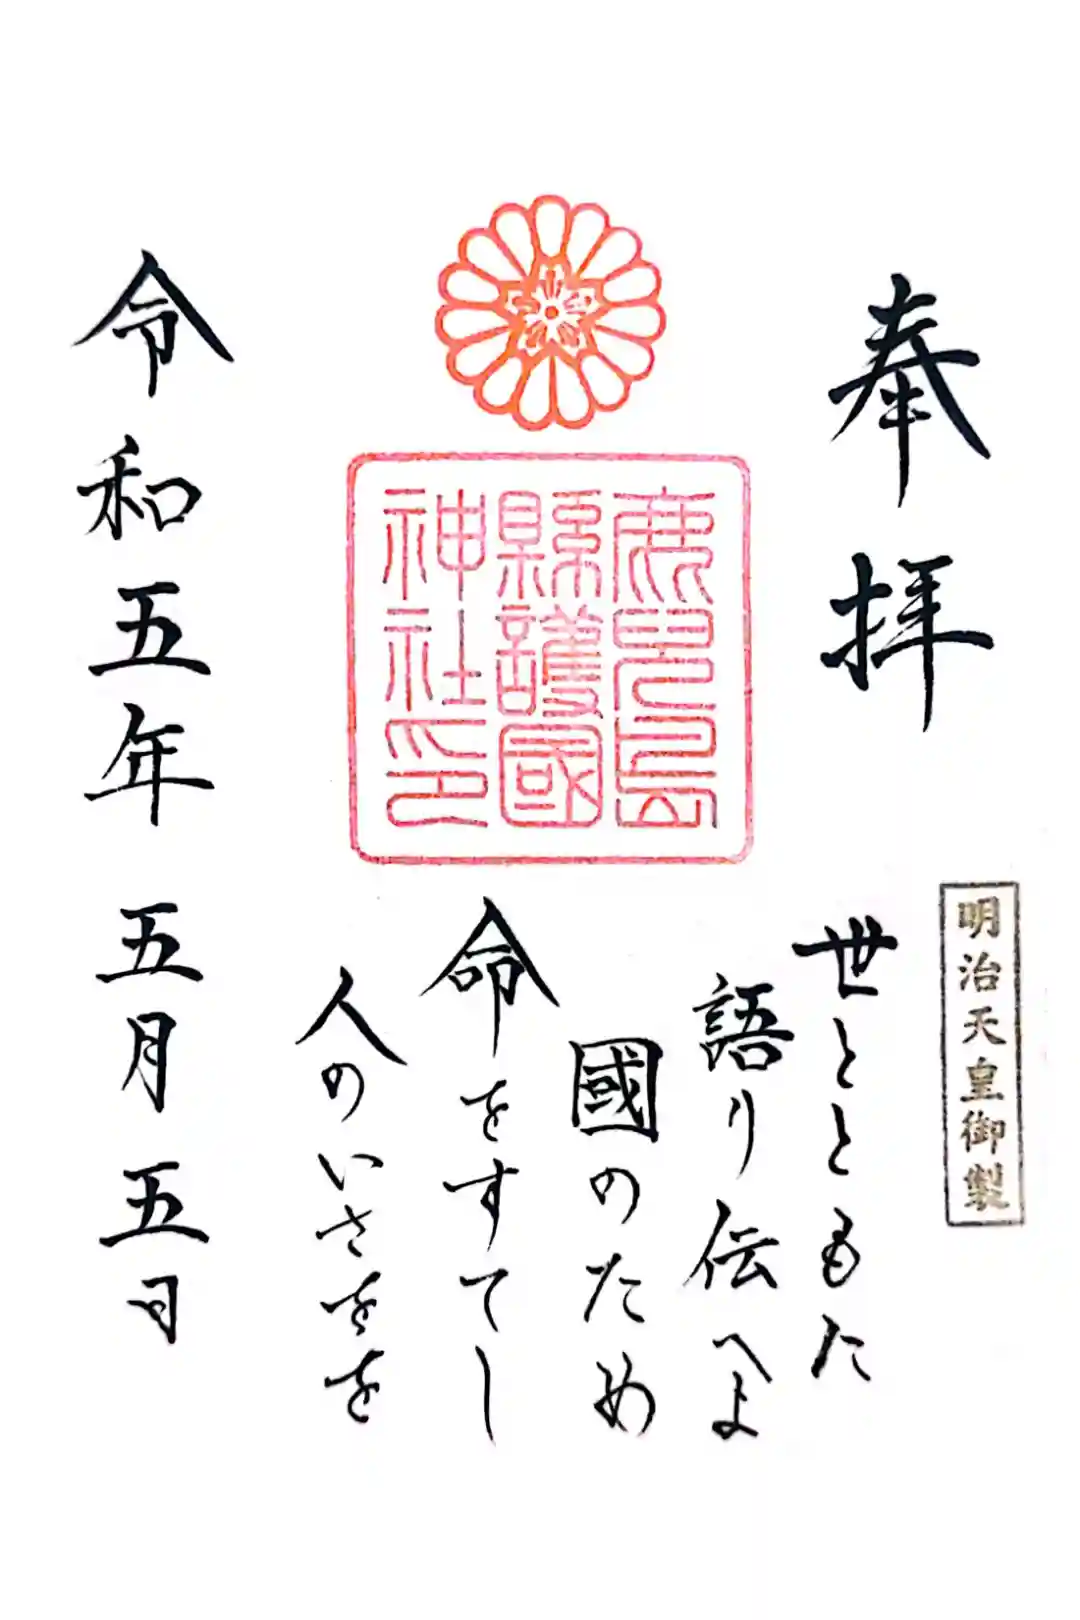 奉拝
明治天皇御製
世とともに
語り伝へよ
國のため
命をすてし
人のいさをを
鹿兒島
縣護國
神社印
令和五年五月五日